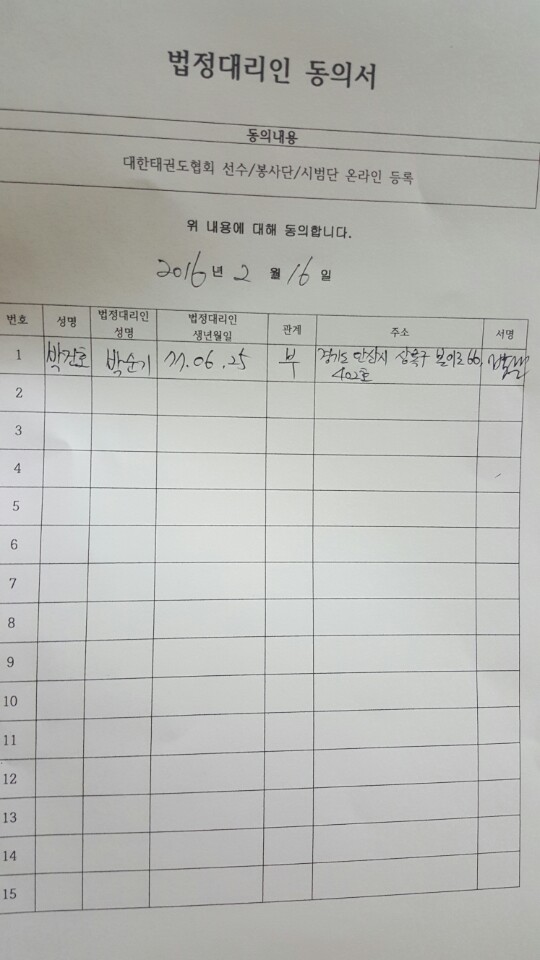 법정대리인 동의서
동의내용
대한태권도협회 선수/봉사단/시범단 온라인 등록
위 내용에 대해 동의합니다.
2016년 2 월 16 일
번호 성명 법정대리인 성명 법정대리인 생년월일 관계 주소 서명
1 박건호 박순기 77.06.25 부 경기도 안산시 상록구 66,
402호
2
3
4
5
6
7
8
9
10
11
12
13
14
15